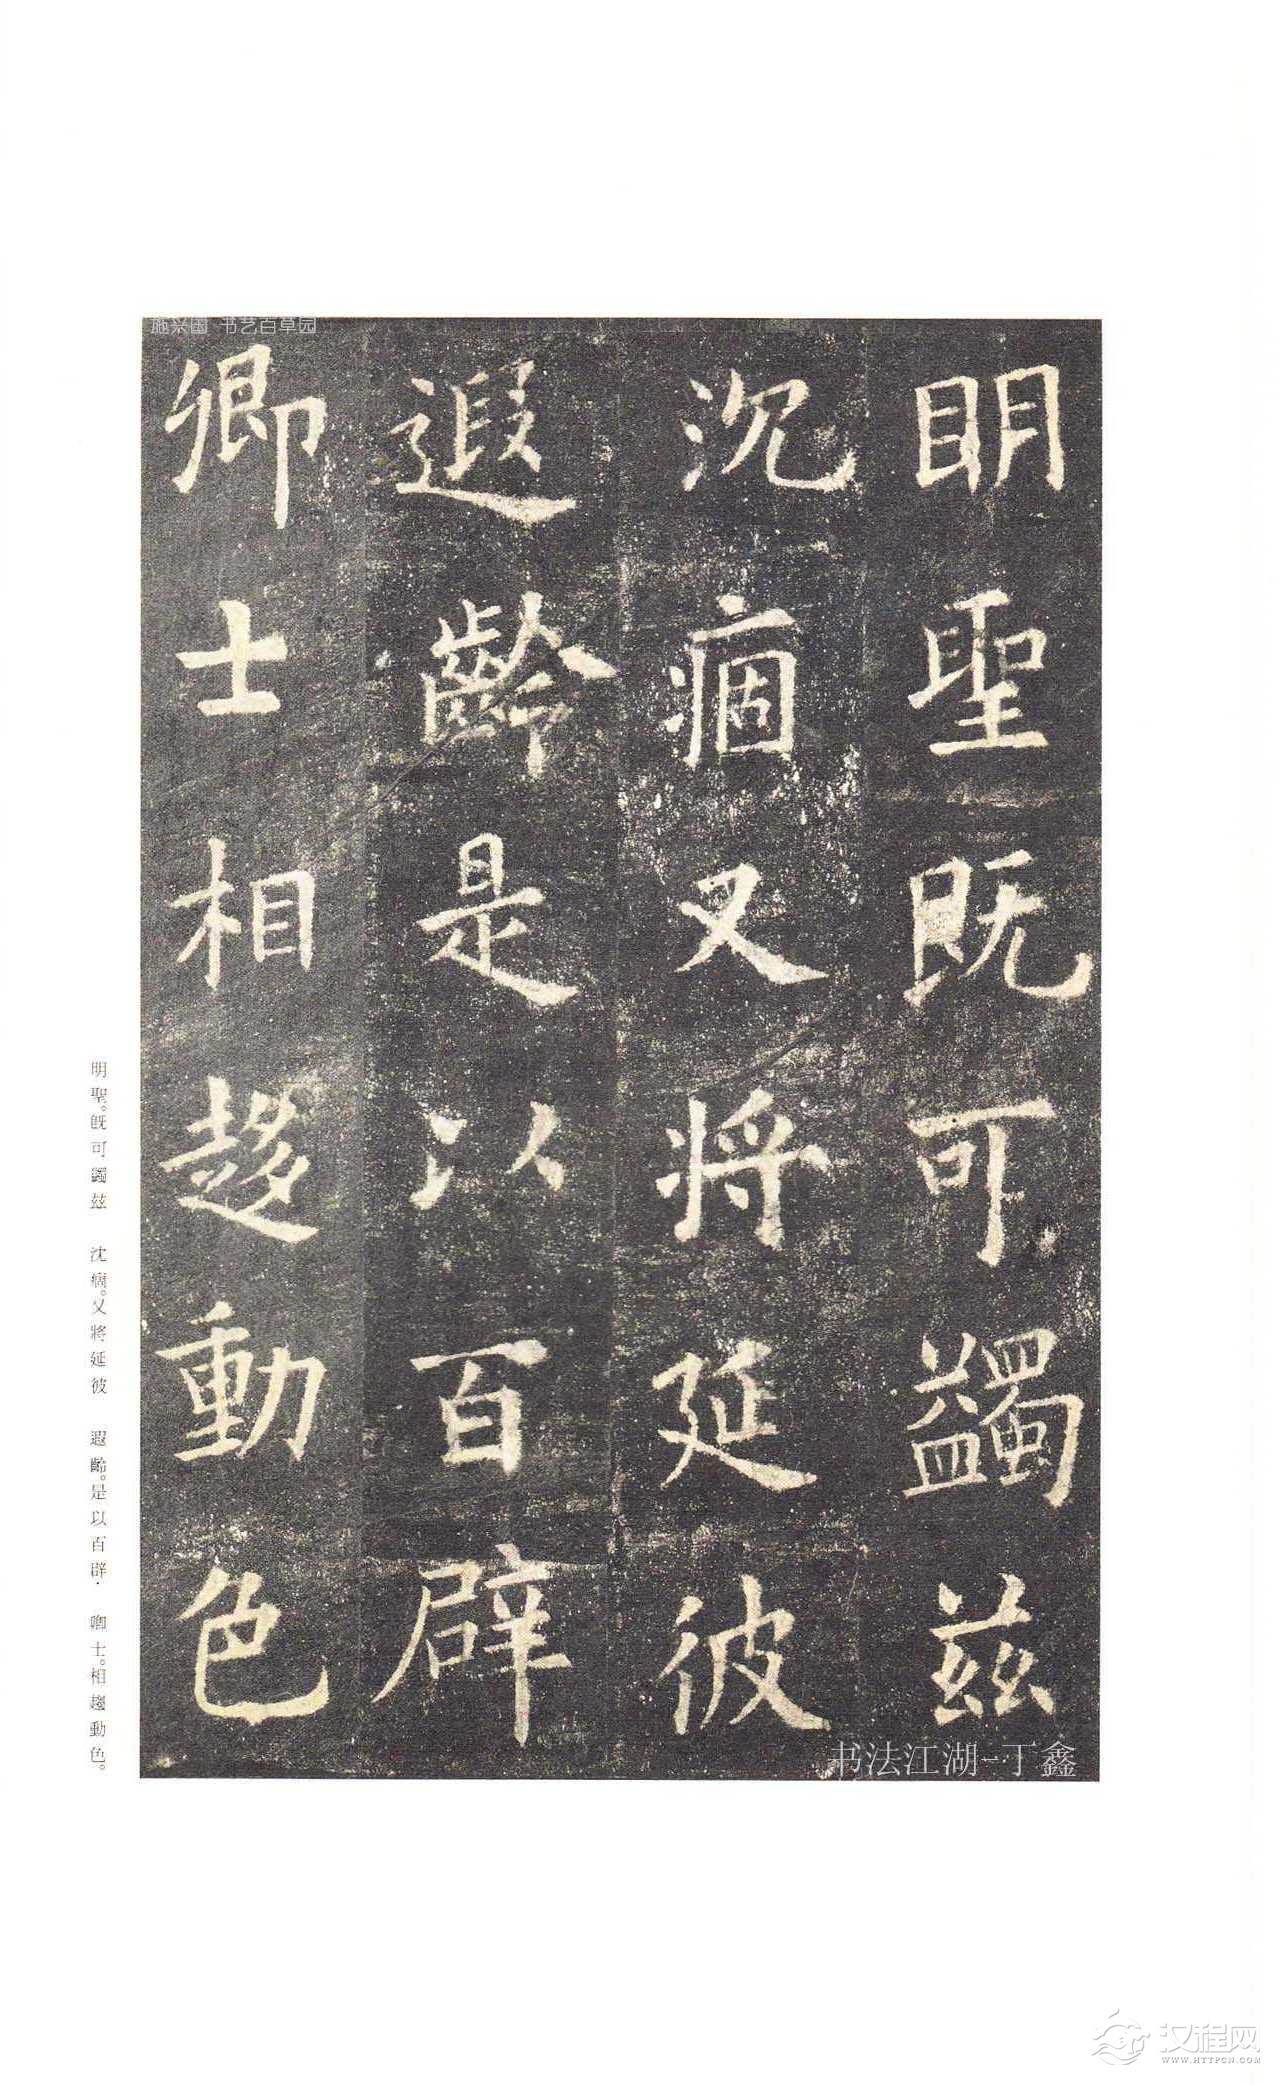 明聖既可蠲茲
沉痼又将延彼
遐齡是以百辟
卿士相趍動色
明聖。既可蠲茲　沈痼。又將延彼　遐齡。是以百辟·　卿士。相趨動色。
施兴国 书艺百草园
书法江湖-丁鑫
汉程网
WWW.HTTPCN.COM